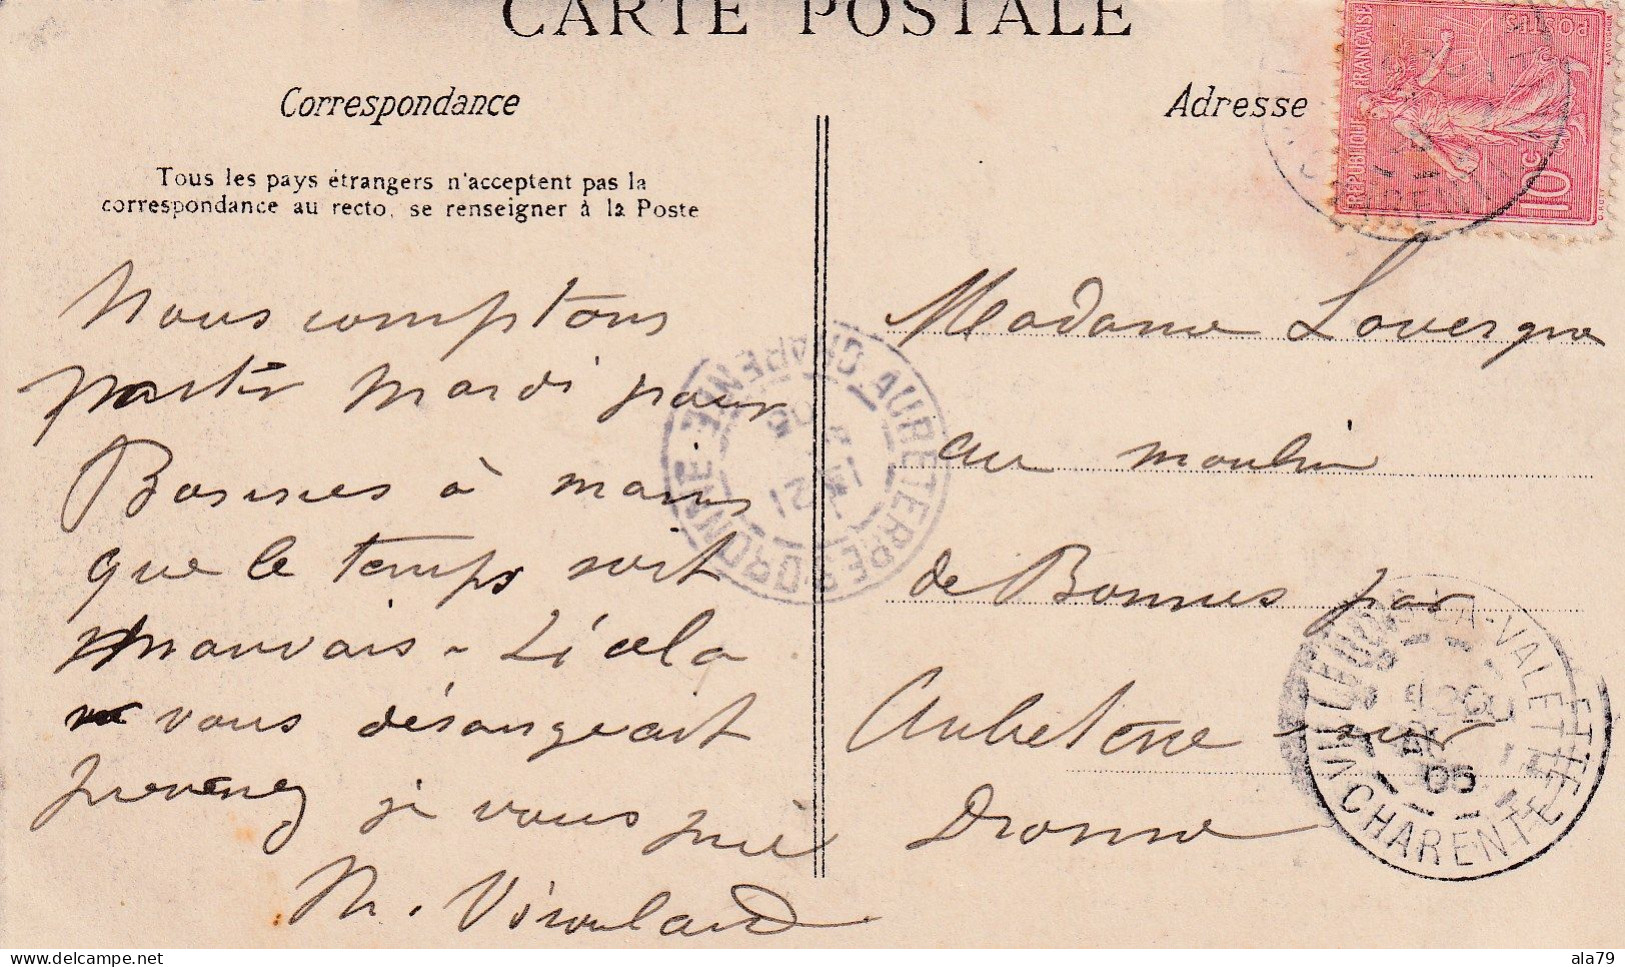 CARTE POSTALE
Correspondance
Adresse
Tous les pays étrangers n'acceptent pas la
correspondance au recto, se renseigner à la Poste
Nous comptons
partir mardi pour
Bonnes à moins
que le temps soit
mauvais - Si cela
vous dérangeait
prevenez je vous prie
M. Viroulaud
Madame Lavergne
au moulin
de Bonnes par
Aubeterre sur
Dronne
RÉPUBLIQUE FRANÇAISE
POSTES
10 c
O. ROTY
AUBETERRE-S-DRONNE CHARENTE
VILLEBOIS-LA-VALETTE
CHARENTE
05
ala79